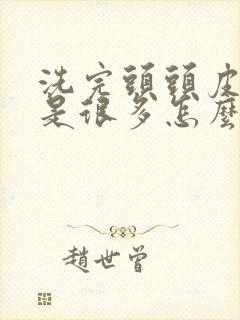 洗完頭頭皮
是很多怎麼
趙世曾